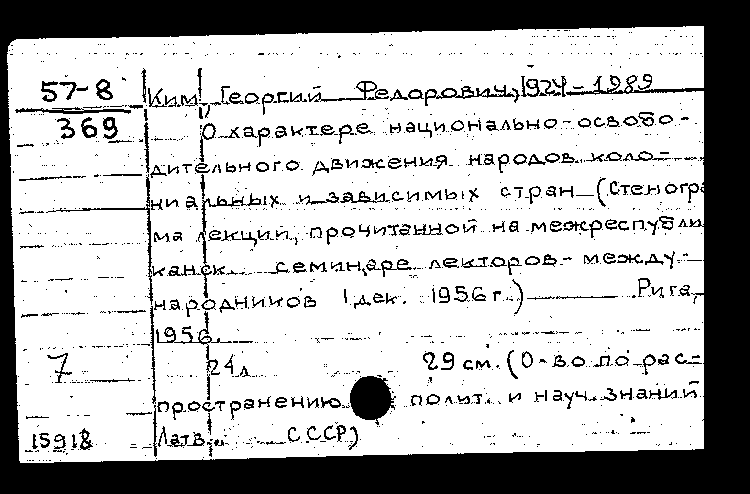 57-8 Ким, Георгий Федорович, 1924-1989
369 О характере национально-освобо-
дительного движения народов коло-
ниальных и зависимых стран (Стеногра
ма лекции, прочитанной на межреспубли
канск. семинаре лекторов-между-
народников 1 дек. 1956 г.) Рига,
1956.
7 24 л 29 см. (О-во по рас-
пространению полит. и науч. знаний
15918 Латв. СССР)